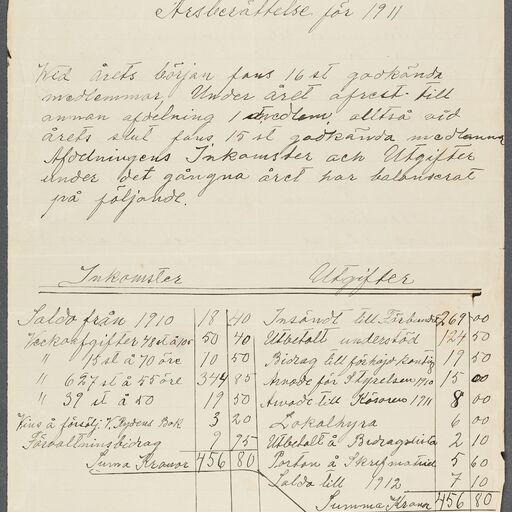 Årsberättelse för 1911
Wid årets början fans 16 st godkända
medlemmar, Under året afrest till
annan afdelning 1 medlem, alltså vid
årets slut fans 15 st godkända medlemmar
Afdelningens Inkomster och Utgifter
under det gångna året har balanserat
på följande.
Inkomster Utgifter
Saldo från 1910 18 40 Insändt till Förbundet 269 00
Veckoafgifter 48 st à 105 50 40 Utbetalt understöd 124 50
" 15 st à 70 öre 10 50 Bidrag till förhöjd konting 19 50
" 627 st à 55 öre 344 85 Arvode för Styrelsen 1910 15 00
" 39 st à 50 19 50 Arvode till 1911 8 00
Vins å försålj. Bok 3 20 Lokalhyra 6 00
Förvaltninsbidrag 9 95 Utbetalt å Bidragslista 2 10
Suma Kronor 456 80 Porton å 5 60
Saldo till 1912 7 10
Summa Kronor 456 80